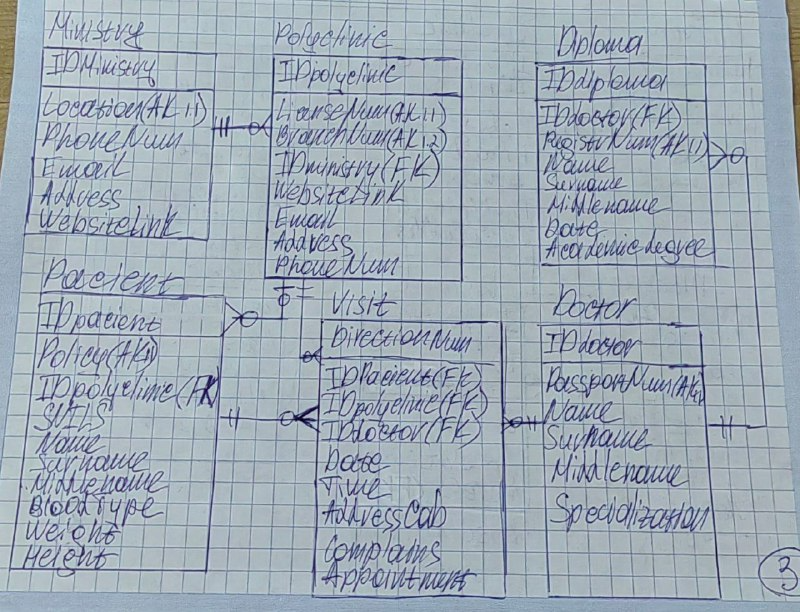 Ministry
IDMinistry
Location(AK1.1)
PhoneNum
Email
Address
WebsiteLink
Polyclinic
IDpolyclinic
LicenseNum(AK1.1)
BranchNum(AK1.2)
IDministry(FK)
WebsiteLink
Email
Address
PhoneNum
Diploma
IDdiploma
IDdoctor(FK)
RegistrNum(AK1.1)
Name
Surname
Middlename
Date
Academicdegree
Pacient
IDpacient
Policy(AK1.1)
IDpolyclinic(FK
Name
Surname
Middlename
BloodType
Weight
Height
Visit
DirectionNum
IDPacient(FK)
IDpolyclinic(FK)
IDdoctor(FK)
Date
Time
AddressCab
Complains
Appointment
Doctor
IDdoctor
PassportNum(AK1.1
Name
Surname
Middlename
Specialization
3